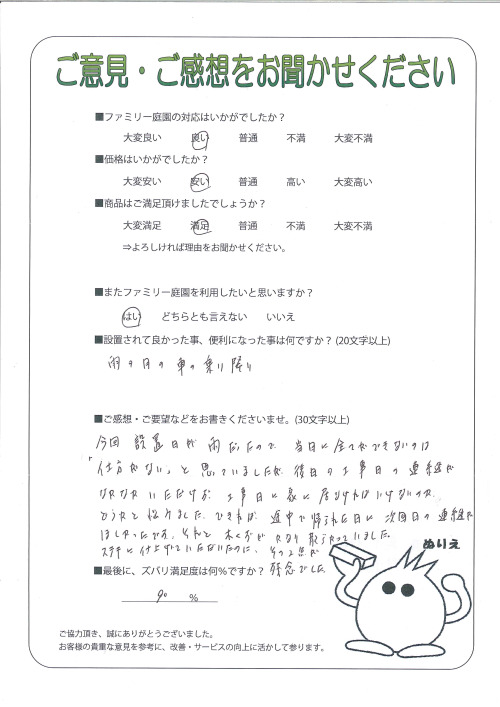 ご意見・ご感想をお聞かせください
■ファミリー庭園の対応はいかがでしたか？
大変良い 良い 普通 不満 大変不満
■価格はいかがでしたか？
大変安い 安い 普通 高い 大変高い
■商品はご満足頂けましたでしょうか？
大変満足 満足 普通 不満 大変不満
⇒よろしければ理由をお聞かせください。
■またファミリー庭園を利用したいと思いますか？
はい どちらとも言えない いいえ
■設置されて良かった事、便利になった事は何ですか？(20文字以上)
雨の日の車の乗り降り
■ご感想・ご要望などをお書きくださいませ。(30文字以上)
今回 設置日が 雨だったので、当日に全てができないのは
「仕方がない」と思っていましたが、後日の工事日の連絡が
なかなかいただけず、工事日に家に居なければいけないのか、
どうかと悩みました。できれば、途中で帰られた日に次回日の連絡が
ほしかったです。それと、木くずがかなり散らかっていました。
ステキに仕上げていただいたのに、その2点が
残念でした。
■最後に、ズバリ満足度は何%ですか？
90 %
ぬりえ
ご協力頂き、誠にありがとうございました。
お客様の貴重な意見を参考に、改善・サービスの向上に活かして参ります。